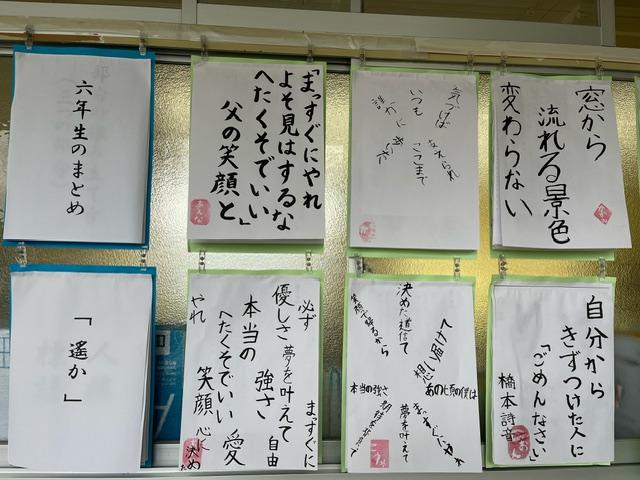 六年生のまとめ
「まっすぐにやれ
よそ見はするな
へたくそでいい」
父の笑顔と
気づけば
いつも
支えられ
ここまで
誰かに
窓から
流れる景色
変わらない
「遥か」
必ず
まっすぐに
優しさ
夢を叶えて
自由
本当の
強さ
愛
へたくそでいい
笑顔
心に
決めた
やれ
決めた道信て
笑顔で帰るから
想い届けて
本当の強さ
あの頃の僕は
まっすぐにやれ
夢を叶えて
自分から
きずつけた人に
「ごめんなさい」
橋本詩音